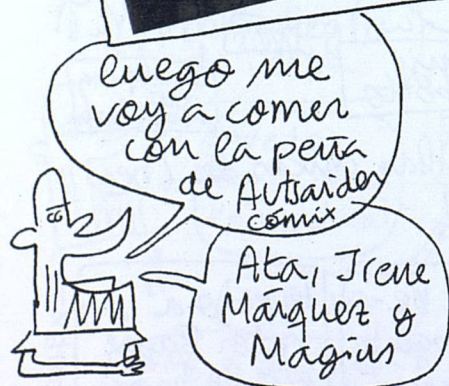 luego me
voy a comer
con la peña
de Autsaider
cómix
Ata, Irene
Márquez y
Magius